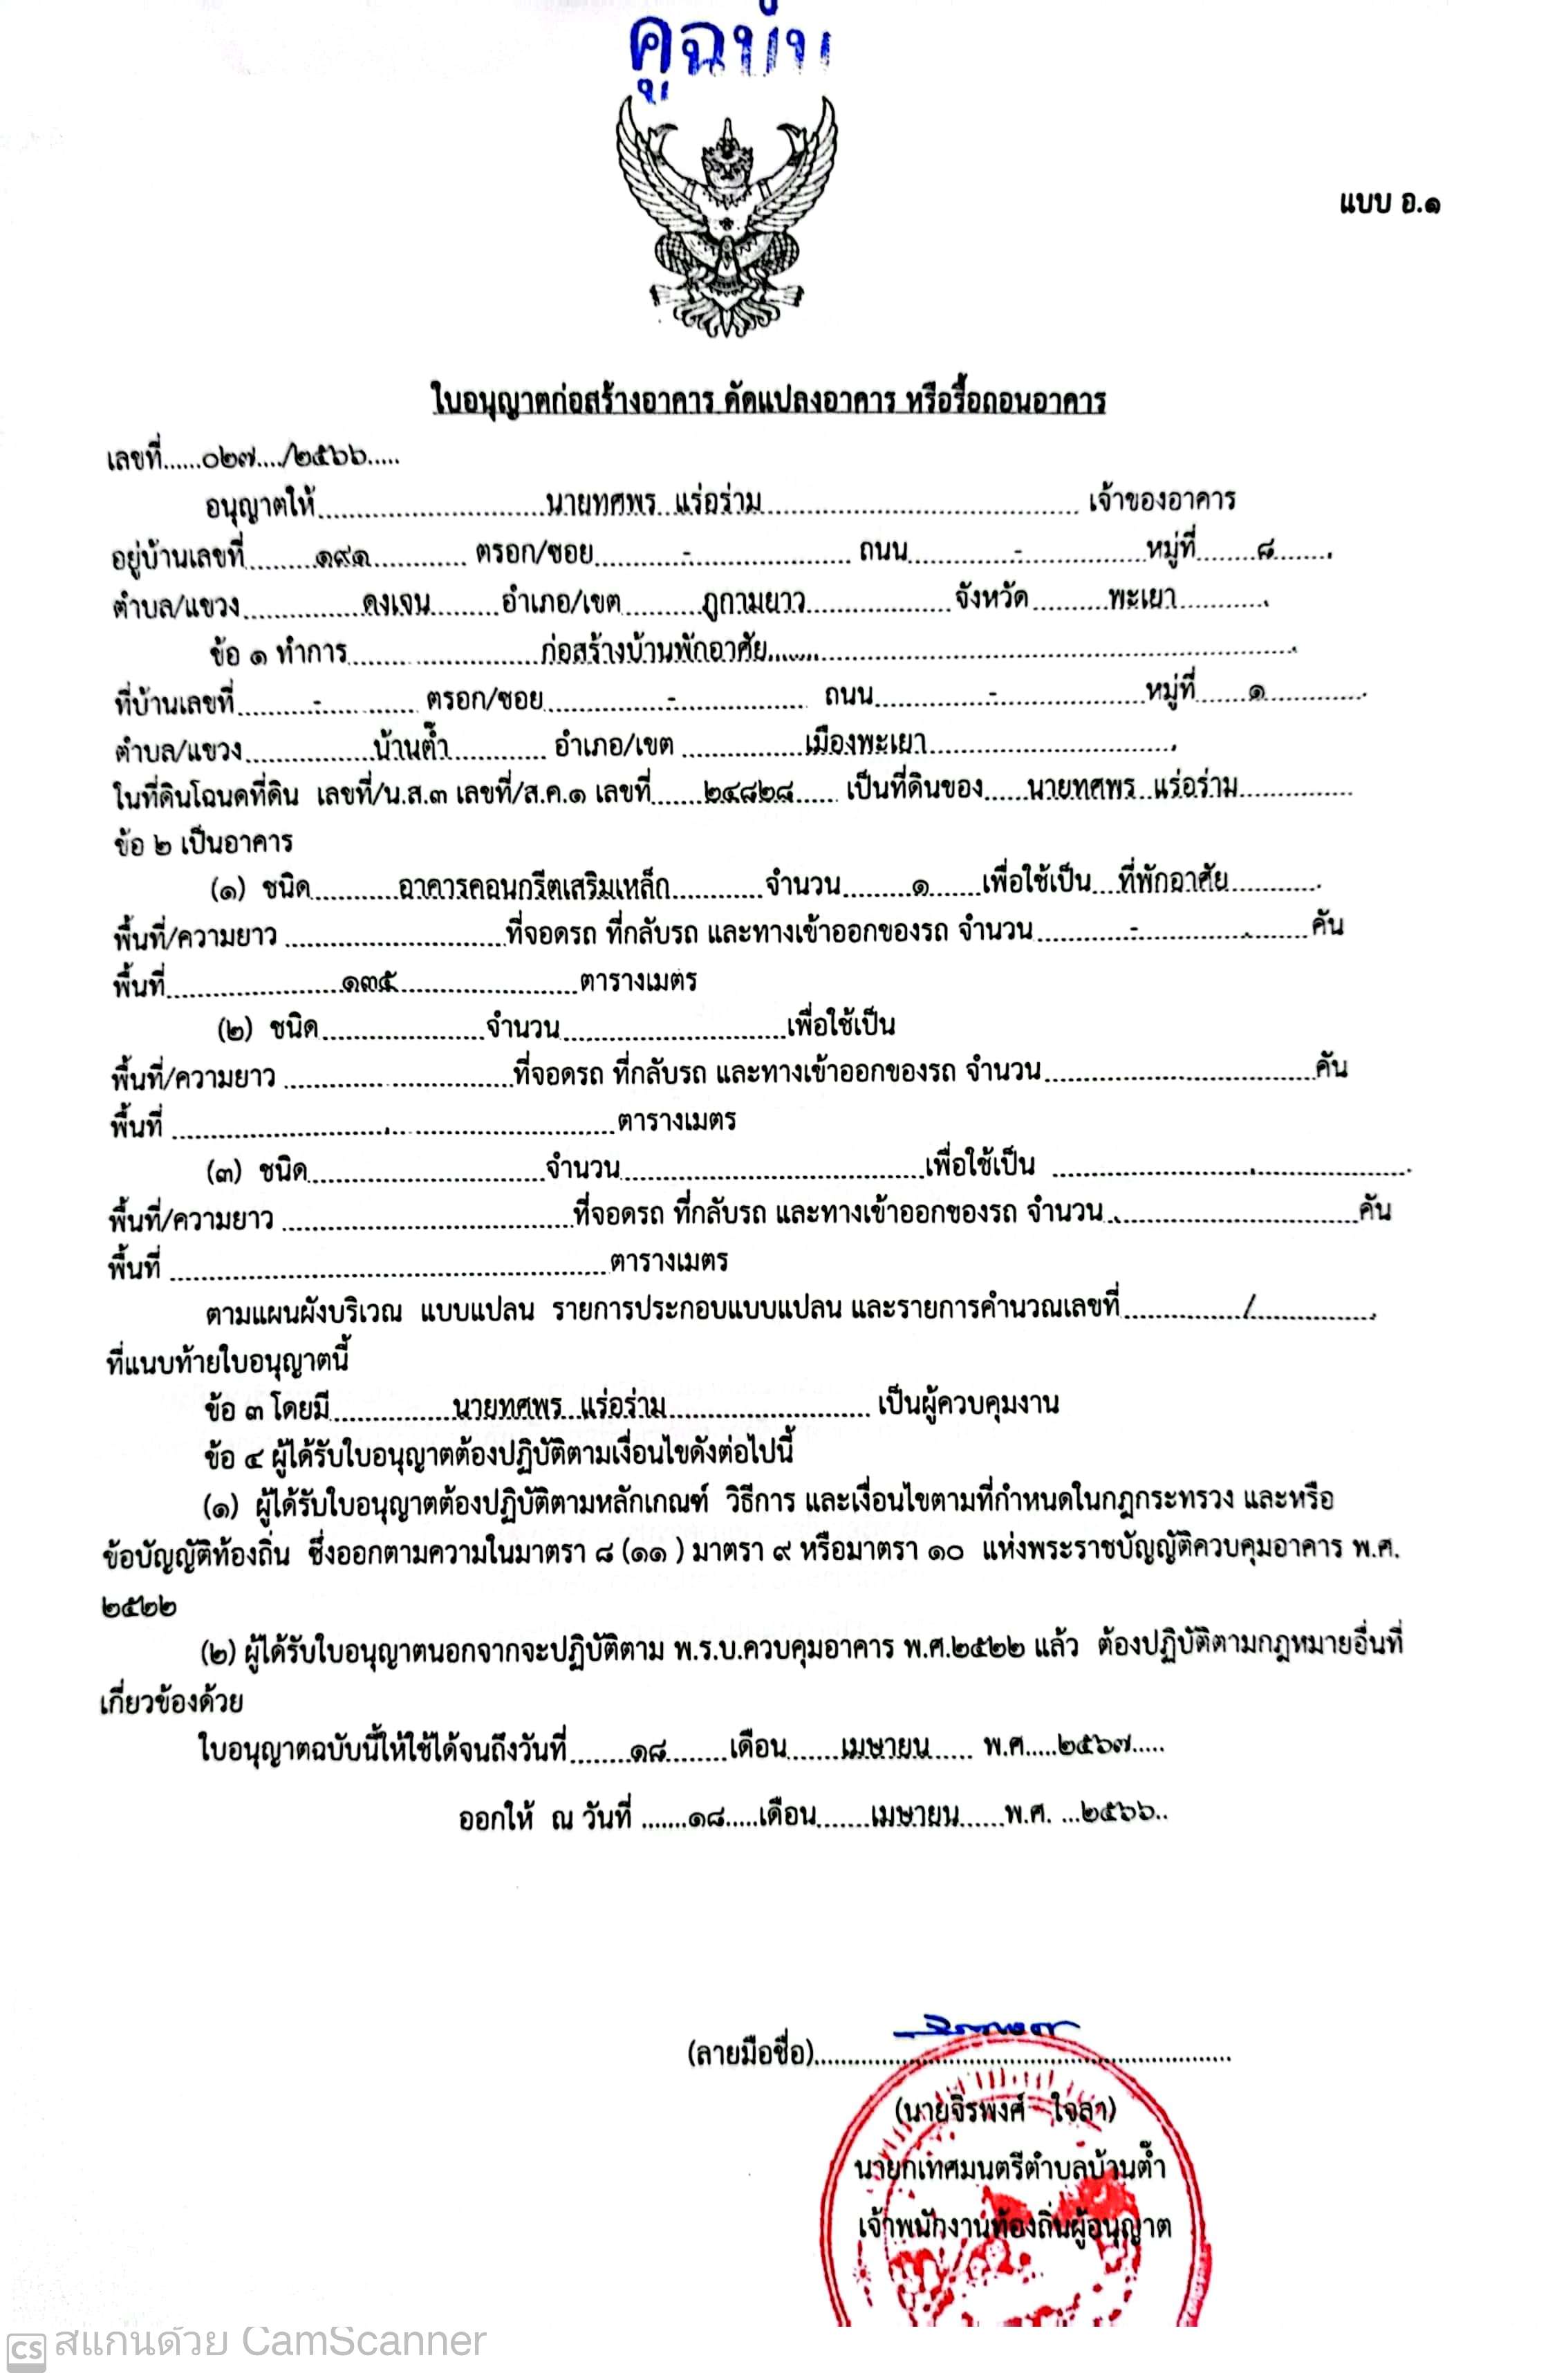 คู่ฉบับ
แบบ อ.๑
ใบอนุญาตก่อสร้างอาคาร ดัดแปลงอาคาร หรือรื้อถอนอาคาร
เลขที่......๐๒๗..../๒๕๖๖.....
อนุญาตให้..............................นายทศพร แร่อร่าม........................................ เจ้าของอาคาร
อยู่บ้านเลขที่.........๑๙๑............ ตรอก/ซอย............-...................... ถนน..............-................หมู่ที่........๘.......
ตำบล/แขวง...............ดงเจน.........อำเภอ/เขต..........ภูกามยาว..................จังหวัด..........พะเยา...........
ข้อ ๑ ทำการ.........................ก่อสร้างบ้านพักอาศัย..............................................................
ที่บ้านเลขที่..........-............ ตรอก/ซอย................-................ ถนน..............-...................หมู่ที่.......๑............
ตำบล/แขวง................บ้านต๊ำ............ อำเภอ/เขต ...............เมืองพะเยา...............................
ในที่ดินโฉนดที่ดิน เลขที่/น.ส.๓ เลขที่/ส.ค.๑ เลขที่.......๒๔๘๒๘...... เป็นที่ดินของ......นายทศพร แร่อร่าม..............
ข้อ ๒ เป็นอาคาร
(๑) ชนิด...........อาคารคอนกรีตเสริมเหล็ก...........จำนวน.........๑......เพื่อใช้เป็น...ที่พักอาศัย............
พื้นที่/ความยาว ............................ที่จอดรถ ที่กลับรถ และทางเข้าออกของรถ จำนวน............-.....................คัน
พื้นที่......................๑๓๕.......................ตารางเมตร
(๒) ชนิด.....................จำนวน.............................เพื่อใช้เป็น
พื้นที่/ความยาว .............................ที่จอดรถ ที่กลับรถ และทางเข้าออกของรถ จำนวน...................................คัน
พื้นที่ ........................................................ตารางเมตร
(๓) ชนิด..............................จำนวน.......................................เพื่อใช้เป็น .............................................
พื้นที่/ความยาว .....................................ที่จอดรถ ที่กลับรถ และทางเข้าออกของรถ จำนวน.................................คัน
พื้นที่ ........................................................ตารางเมตร
ตามแผนผังบริเวณ แบบแปลน รายการประกอบแบบแปลน และรายการคำนวณเลขที่.............../................
ที่แนบท้ายใบอนุญาตนี้
ข้อ ๓ โดยมี................นายทศพร แร่อร่าม.......................... เป็นผู้ควบคุมงาน
ข้อ ๔ ผู้ได้รับใบอนุญาตต้องปฏิบัติตามเงื่อนไขดังต่อไปนี้
(๑) ผู้ได้รับใบอนุญาตต้องปฏิบัติตามหลักเกณฑ์ วิธีการ และเงื่อนไขตามที่กำหนดในกฎกระทรวง และหรือ
ข้อบัญญัติท้องถิ่น ซึ่งออกตามความในมาตรา ๘ (๑๑ ) มาตรา ๙ หรือมาตรา ๑๐ แห่งพระราชบัญญัติควบคุมอาคาร พ.ศ.
๒๕๒๒
(๒) ผู้ได้รับใบอนุญาตนอกจากจะปฏิบัติตาม พ.ร.บ.ควบคุมอาคาร พ.ศ.๒๕๒๒ แล้ว ต้องปฏิบัติตามกฎหมายอื่นที่
เกี่ยวข้องด้วย
ใบอนุญาตฉบับนี้ให้ใช้ได้จนถึงวันที่........๑๘........เดือน.......เมษายน...... พ.ศ.....๒๕๖๗.....
ออกให้ ณ วันที่ .......๑๘.....เดือน.......เมษายน......พ.ศ. ...๒๕๖๖..
(ลายมือชื่อ)......................................................
(นายจิรพงศ์ ใจลา)
นายกเทศมนตรีตำบลบ้านต๊ำ
เจ้าพนักงานท้องถิ่นผู้อนุญาต
CS สแกนด้วย CamScanner